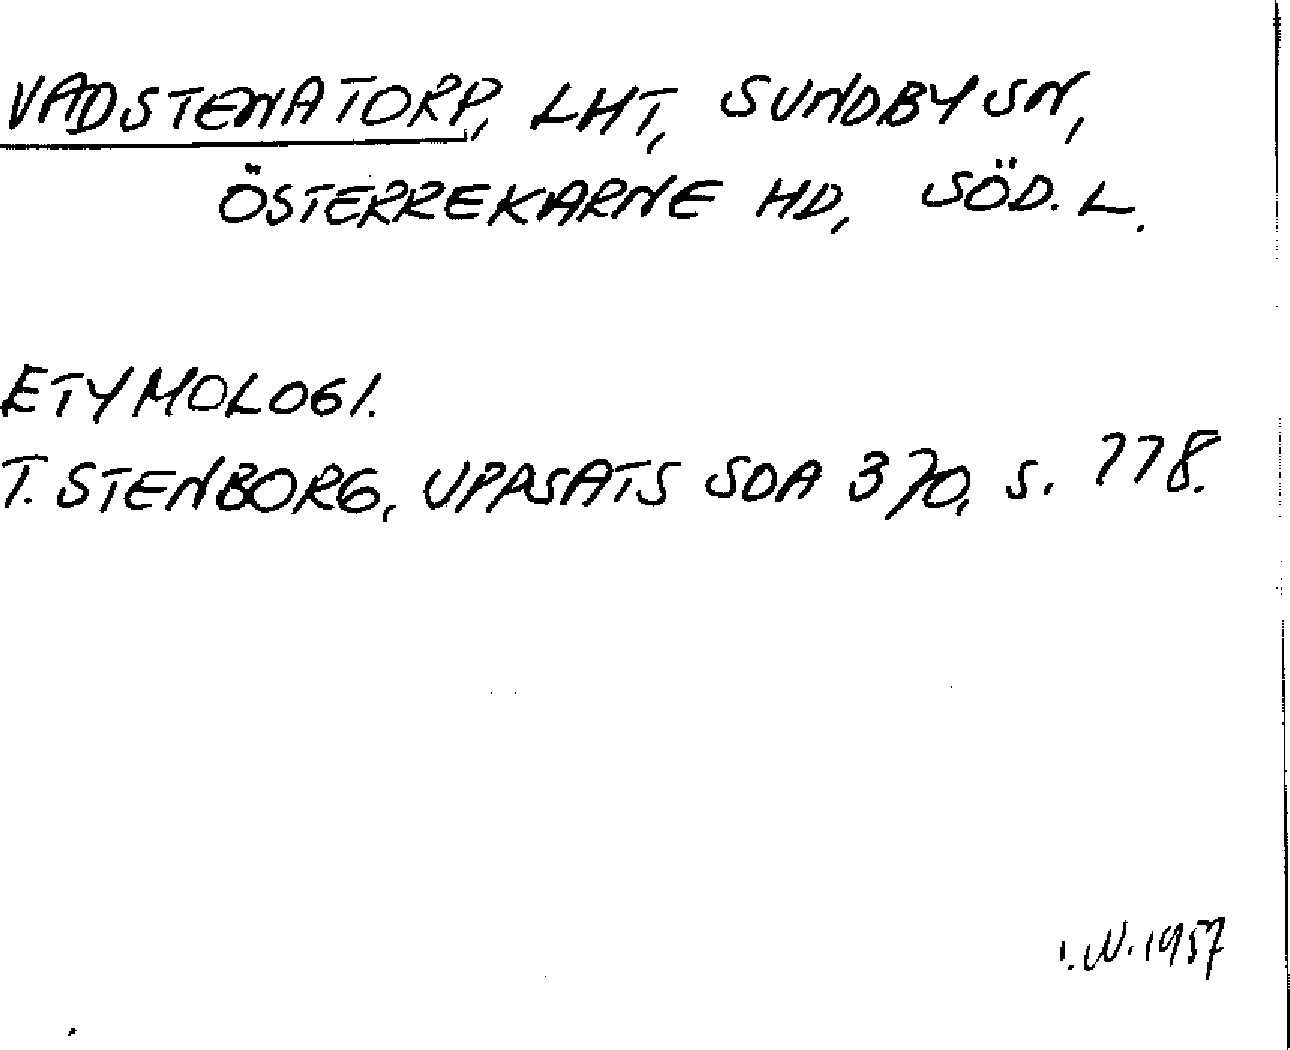 VADSTENATORP, LHT, SUNDBY SN,
ÖSTERREKARNE HD, SÖD. L.
ETYMOLOGI.
T. STENBORG, UPPSATS SOA 370, S. 778.
I.N. 1957